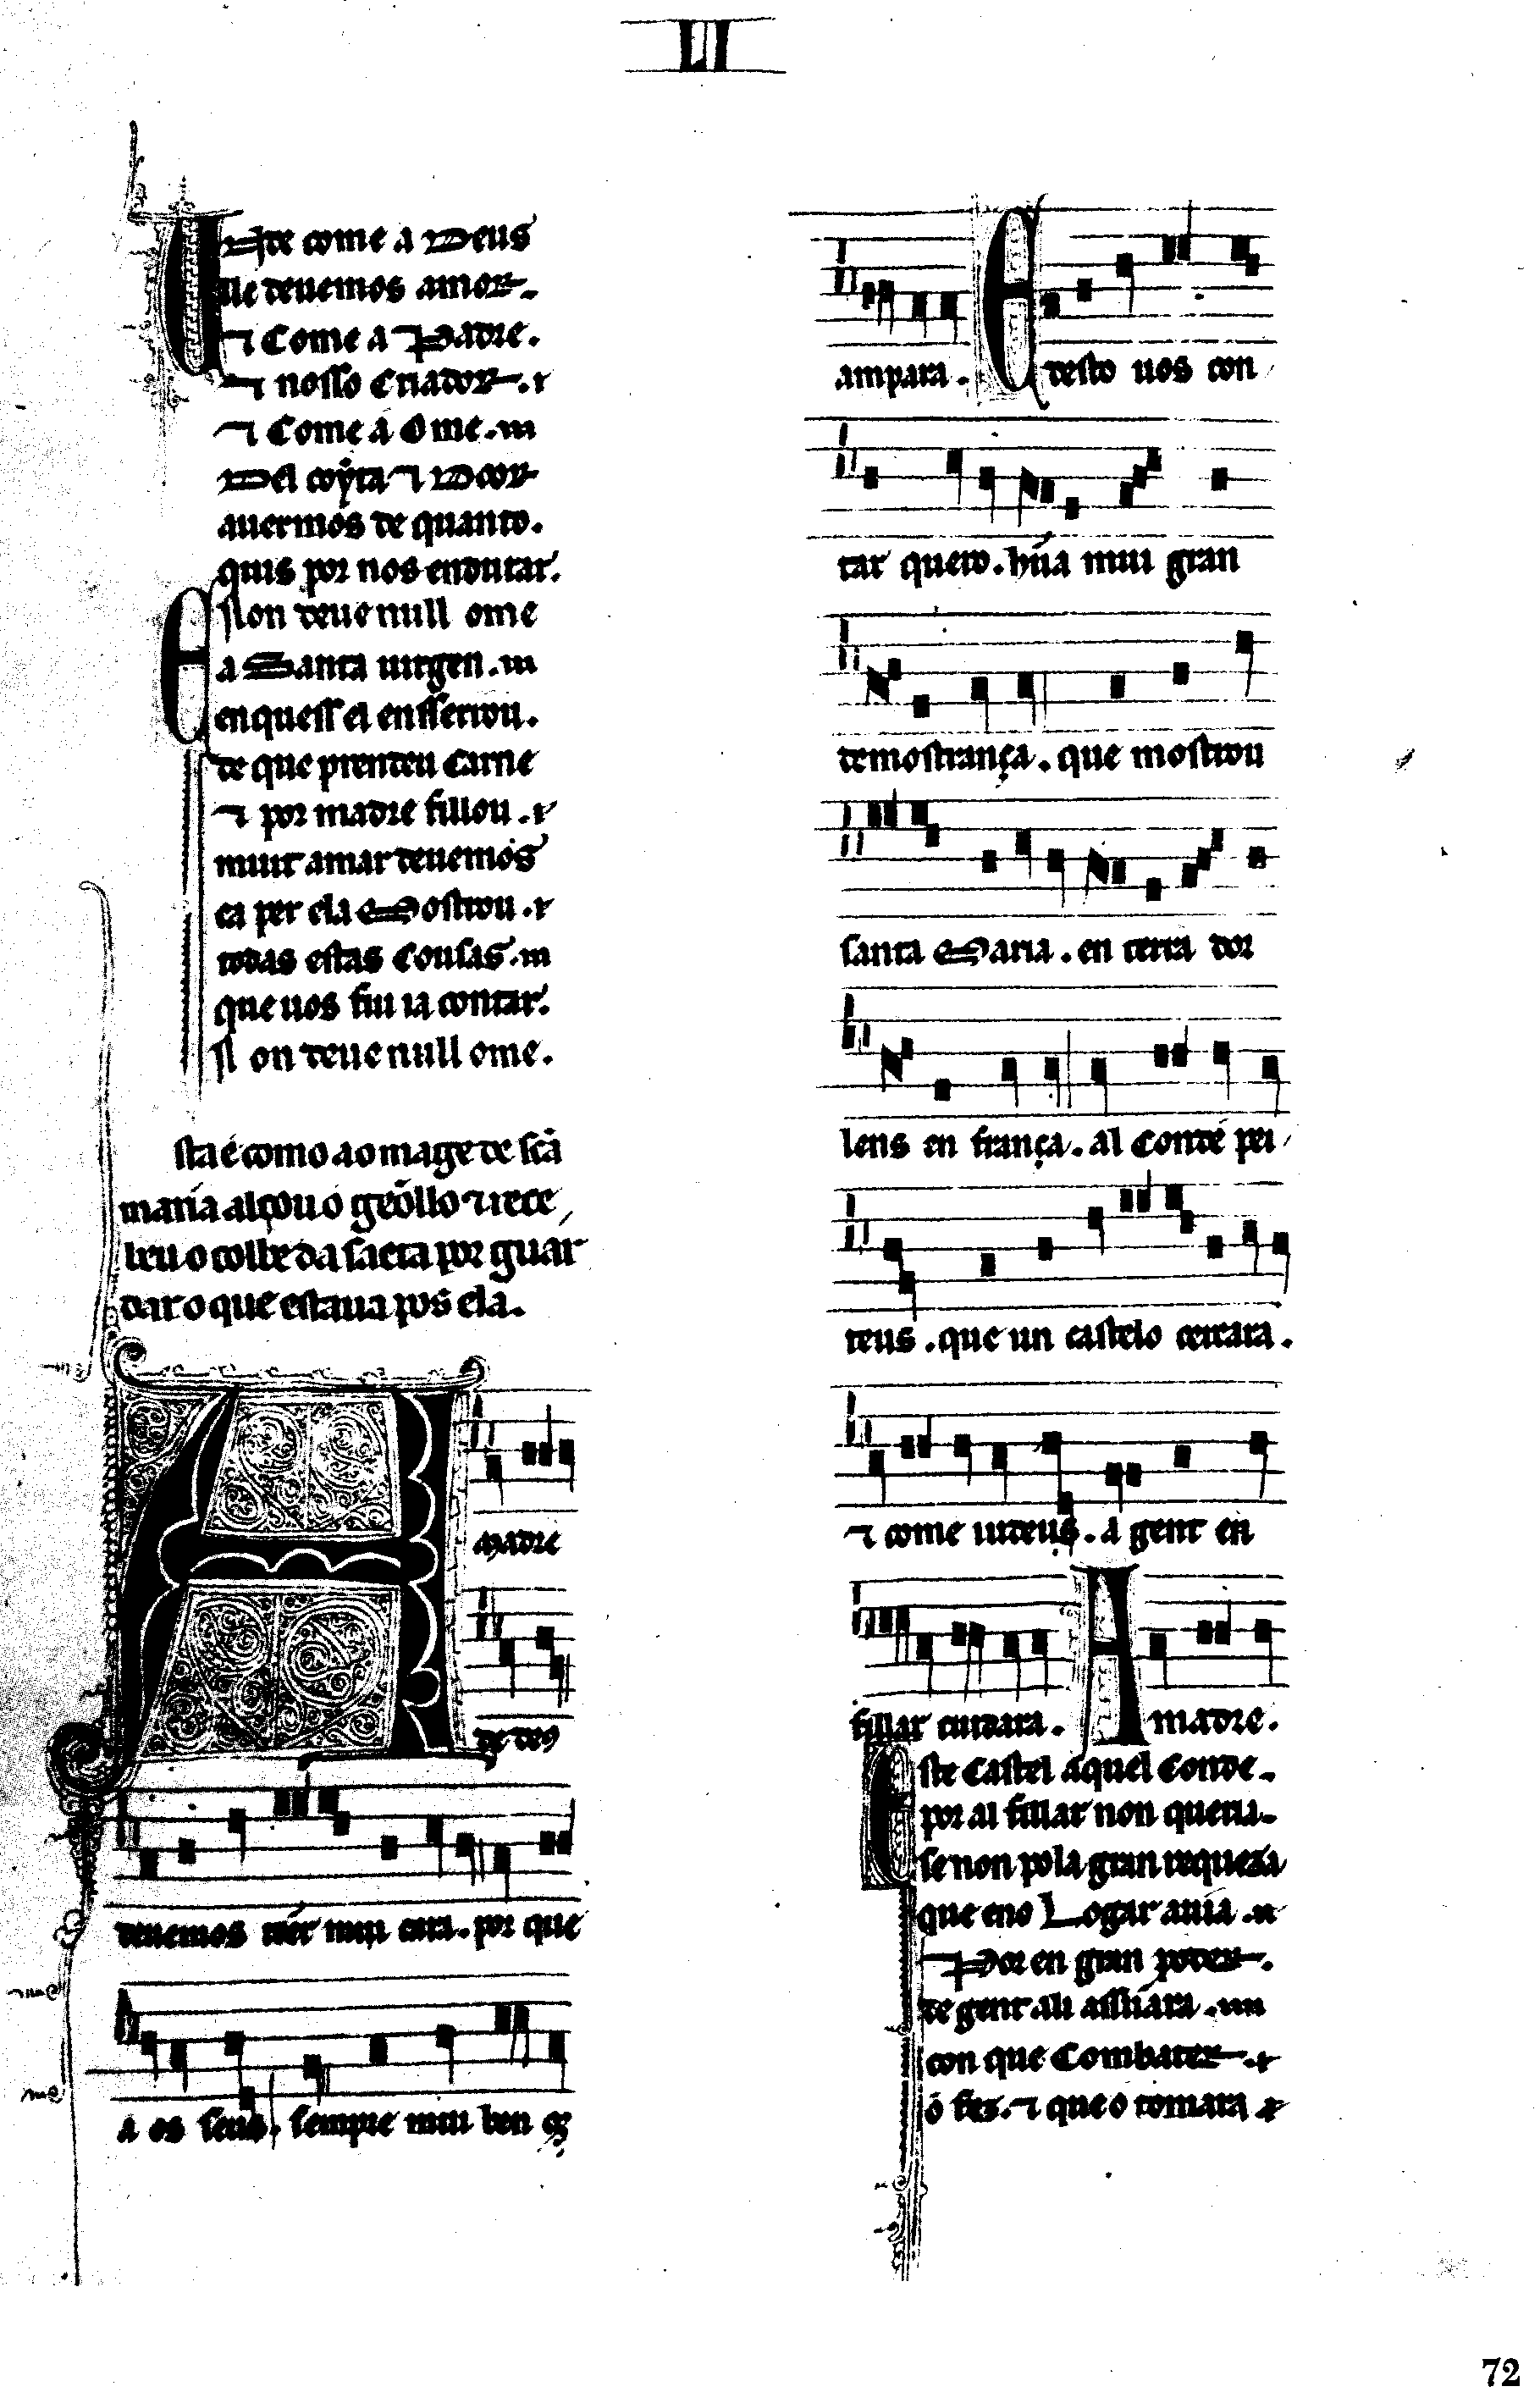 LI
Onde come a Deus
lle deuemos amor.
⁊ Come a Padre.
⁊ nosso Criador. ⁊
⁊ Come a Ome. m
Del coyta ⁊ Door
auermos de quanto.
quis por nos endurar.
Non deue null ome
E a Santa uirgen. m
en quess el enserrou.
de que prendeu Carne
⁊ por madre fillou. ⁊
muit amar deuemos
ca per ela Mostrou. ⁊
todas estas Cousas. m
que uos fui ia contar.
Non deue null ome.
sta é como a omage de scã
maria alçou o geollo ⁊ rece
beu o colbe da saeta por guar
dar o que estaua pos ela.
A madre
de ds
deuemos tẽer mui cara. por que
a os seus. sempre mui ben
ampara. E desto uos con
tar quero. hũa mui gran
demostrança. que mostrou
santa Maria. en terra dor
lens en França. al Conde pei
teus. que un castelo cercara.
⁊ come iudeus. a gent en
fillar cuidara. A madre.
Este Castel aquel Conde.
por al fillar non queria.
se non pola gran requeza
que eno Logar auia. n
Por en gran poder.
de gent ali assũara. m
con que Combater. ⁊
o fez. ⁊ que o tomara ⁊
72